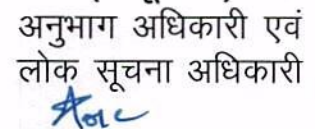 अनुभाग अधिकारी एवं
लोक सूचना अधिकारी